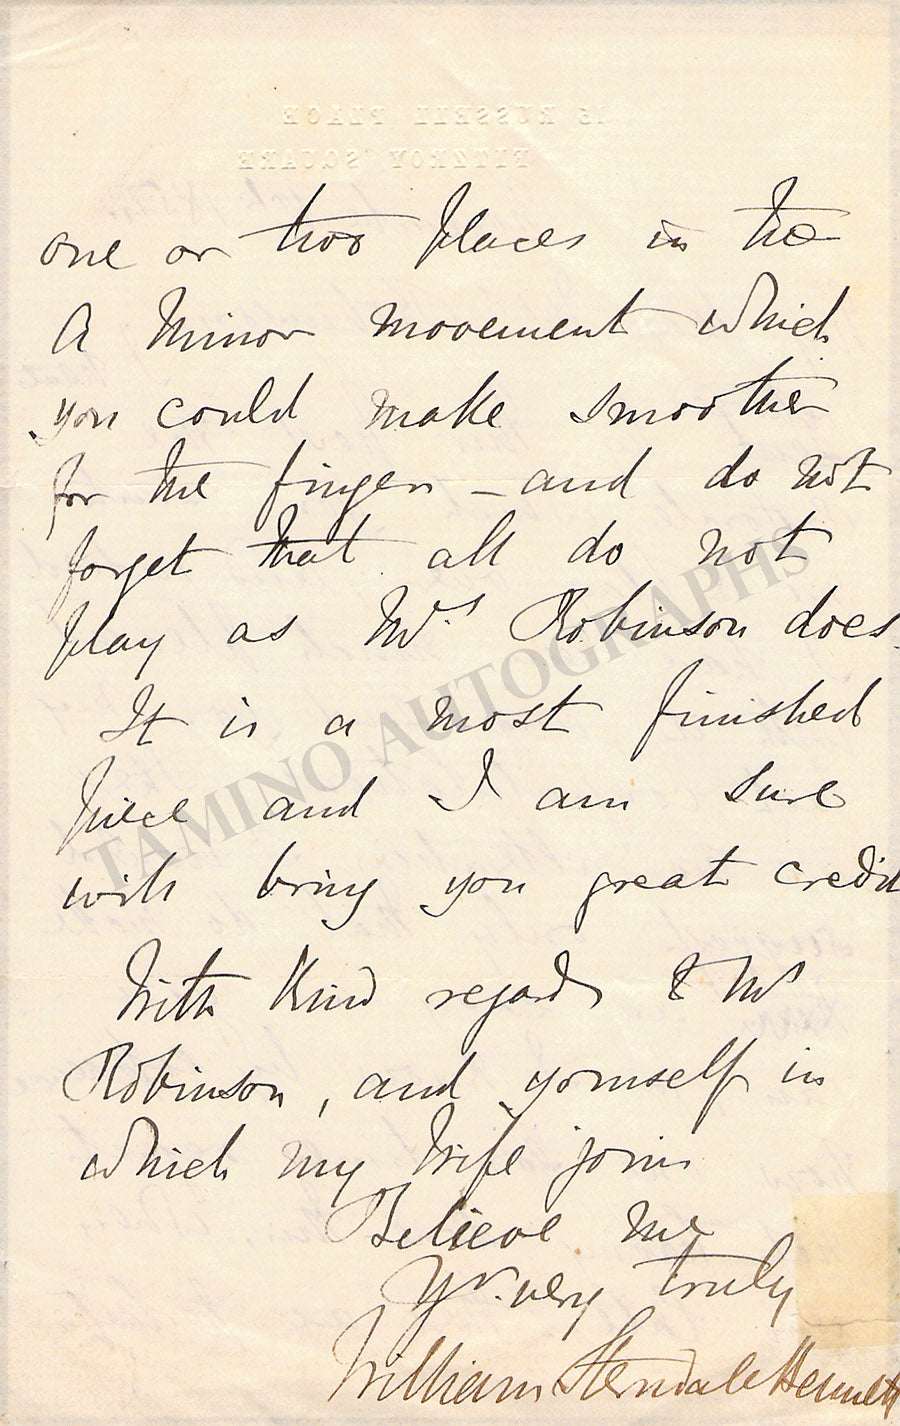 15 RUSSELL PLACE
FITZROY SQUARE
one or two places in the
A Minor movement which
you could make smoother
for the finger – and do not
forget that all do not
play as Mrs. Robinson does.
It is a most finished
piece and I am sure
will bring you great credit
With Kind regards to Mrs
Robinson, and yourself in
which my Wife joins
Believe me
Yr. very truly
William Sterndale Bennett
TAMINO AUTOGRAPHS